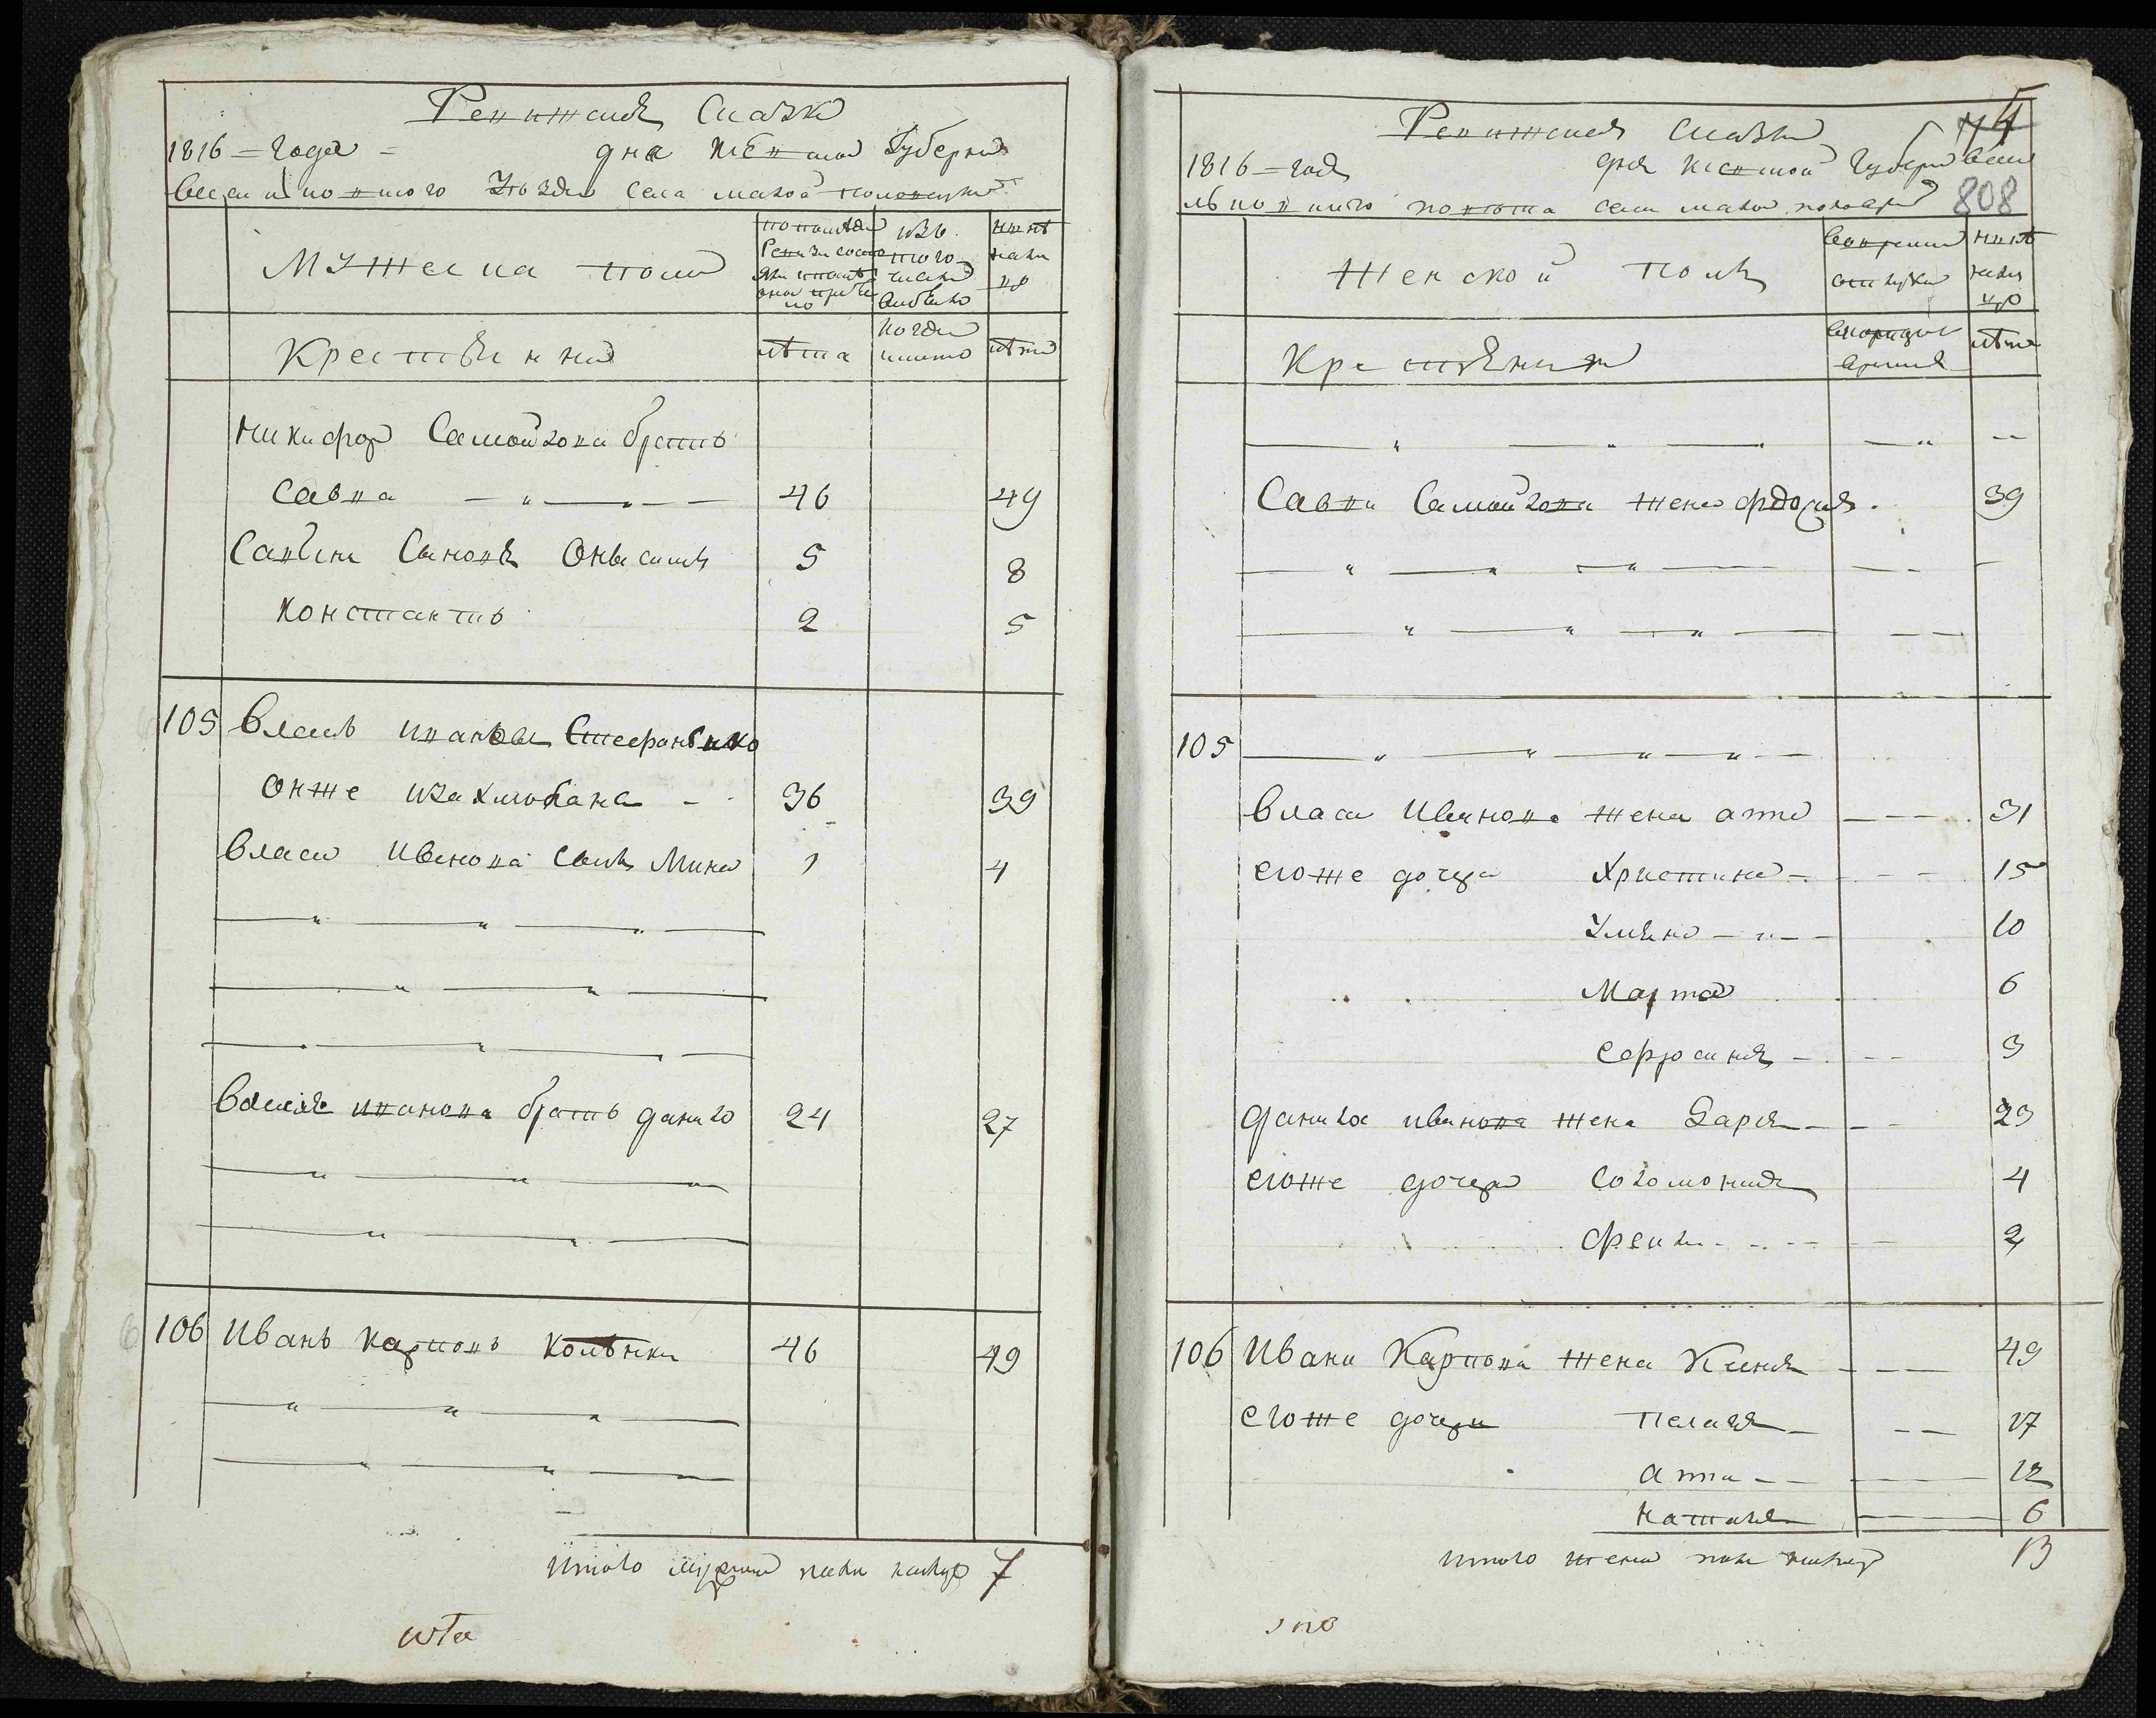 Ревижская Сказка
1816 = года = дня Киевской Губернии
василькповского Уезда села малой половецкой
Мужеска пола
по последней ревизии состояло и после оной прибыло
изъ того числа выбыло
ныне на лицо
Крестьянна
лета
когда именно
лета
Никифор Самойлова братъ
Савва 46 49
Саввины Сыновя Онысимъ 5 8
Константинъ 2 5
105 Власъ Ивановъ Стефаненко
онже 36 39
Власа Иванова сынъ Мина 1 4
Власия Иванова братъ данило 24 27
106 Иванъ Карповъ 46 49
итого мужеска пола налицо 7
Ревижская Сказка
1816 = года дня Киевской Губернии васи
льковского повета села малой половецкой 808
Женской пола
во временной отлучке
ныне на лицо
Крестьянки
лета
Савы Самойлова жена Фдосия 39
105
Власа Иванова жена анна 31
егоже дочери Христина 15
Уляна 10
Марта 6
Ефросиня 3
данила иванова жена Дарея 23
егоже дочери Соломония 4
Фенна 2
106 Ивана Карпова жена Ксения 49
егоже дочери Пелагея 17
анна 12
Наталя 6
итого женска пола налицо 13